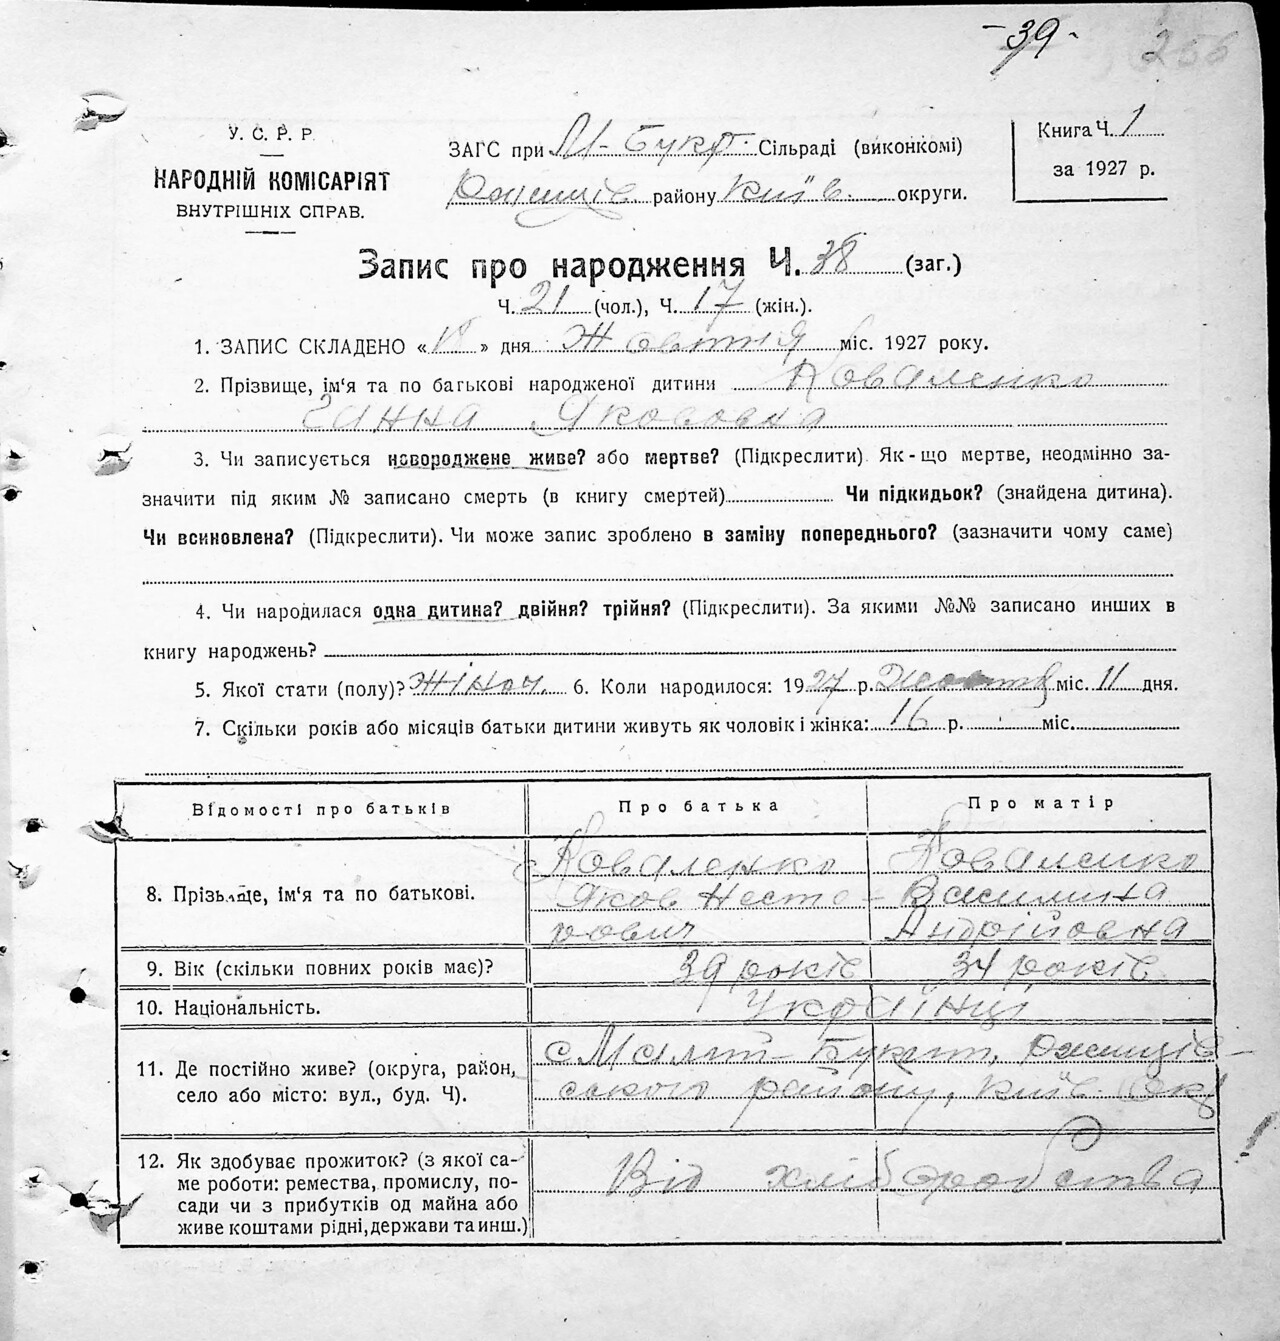 -39-
256
У. С. Р. Р.
НАРОДНІЙ КОМІСАРІЯТ
ВНУТРІШНІХ СПРАВ.
ЗАГС при М-Букр. Сільраді (виконкомі)
Ржищів. району Київ. округи.
Книга Ч. 1
за 1927 р.
Запис про народження Ч. 38 (заг.)
Ч. 21 (чол.), Ч. 17 (жін.).
1. ЗАПИС СКЛАДЕНО « » дня Жовтня міс. 1927 року.
2. Прізвище, ім‘я та по батькові народженої дитини Коваленко
Ганна Якововна
3. Чи записується новороджене живе? або мертве? (Підкреслити) Як-що мертве, неодмінно за-
значити під яким № записано смерть (в книгу смертей) Чи підкидьок? (знайдена дитина).
Чи всиновлена? (Підкреслити). Чи може запис зроблено в заміну попереднього? (зазначити чому саме)
4. Чи народилася одна дитина? двійня? трійня? (Підкреслити). За якими №№ записано инших в
книгу народжень?
5. Якої стати (полу)? жіноч. 6. Коли народилося: 1927 р. Жовтня міс. 11 дня.
7. Скільки років або місяців батьки дитини живуть як чоловік і жінка: 16 р. міс.
Відомості про батьків Про батька Про матір
8. Прізвище, ім‘я та по батькові.
Коваленко Яков Несторович
Коваленко Василина Андрійовна
9. Вік (скільки повних років має)? 39 років 34 років
10. Національність. Українці
11. Де постійно живе? (округа, район,
село або місто: вул., буд. Ч).
с Малий-Букрин, Ржищів-
ського району, Київ. Окр
12. Як здобуває прожиток? (з якої са-
ме роботи: ремества, промислу, по-
сади чи з прибутків од майна або
живе коштами рідні, держави та инш.)
Від хліборобства